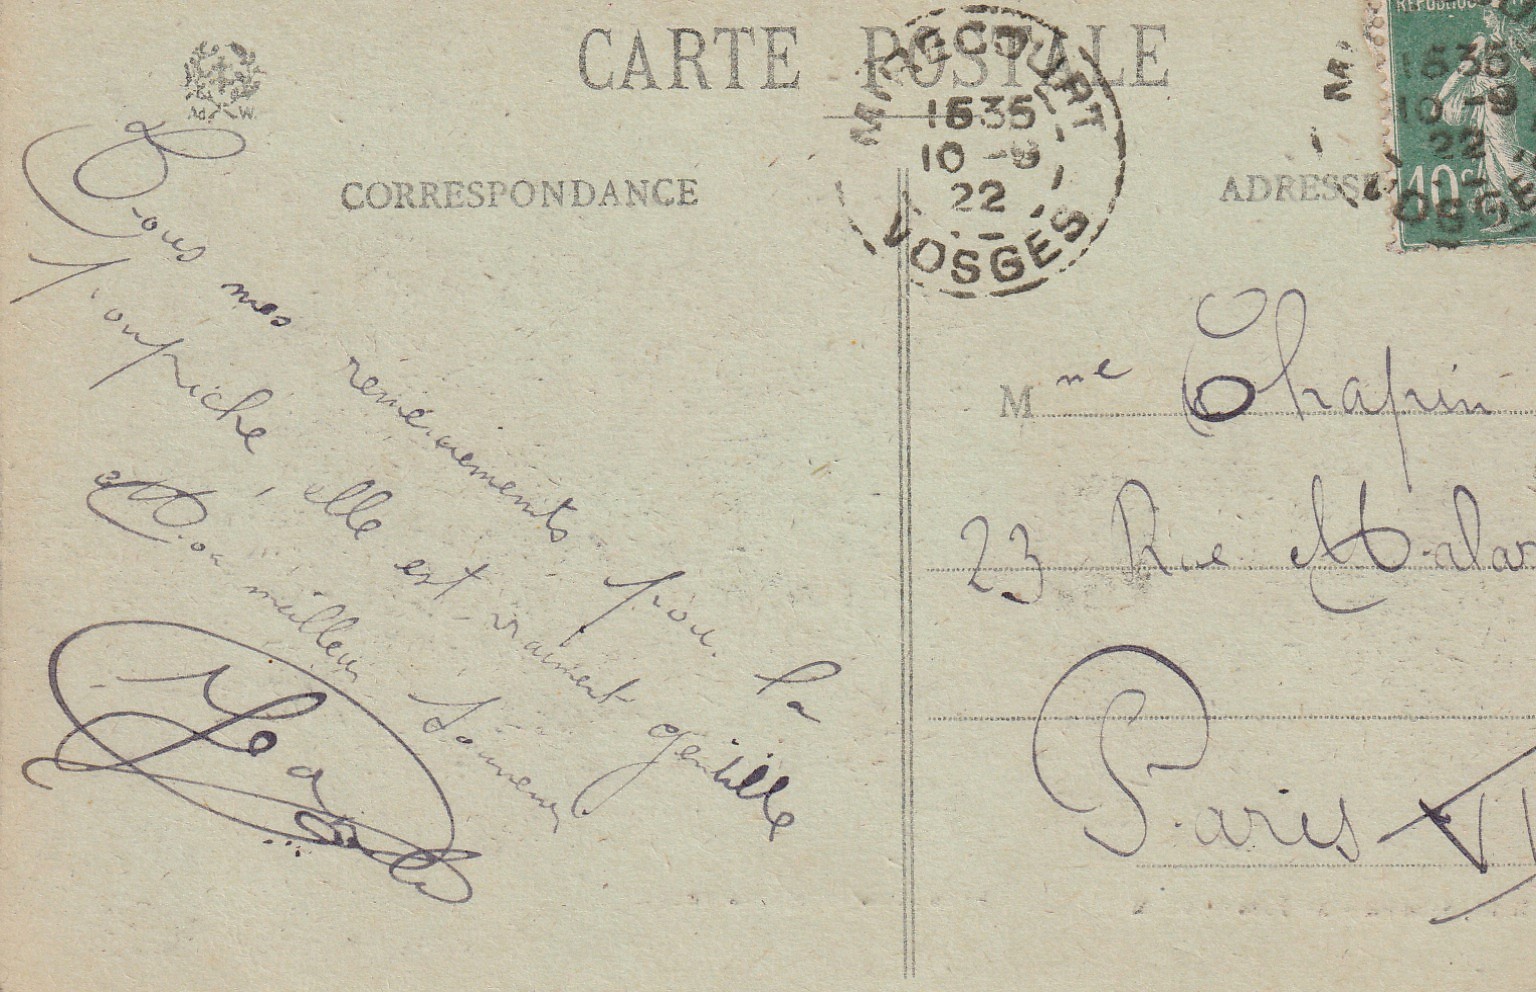 CARTE POSTALE
Ad. W.
MIRECOURT
16 35
10 - 9
22
VOSGES
RÉPUBLIQUE
16 35
10 - 9
22
VOSGES
10c
CORRESPONDANCE
ADRESSE
Tous mes remerciements pour la
Poupiche, elle est vraiment gentille
Mon meilleur Souvenir
Mme Chapin
23 Rue Malar
Paris VI